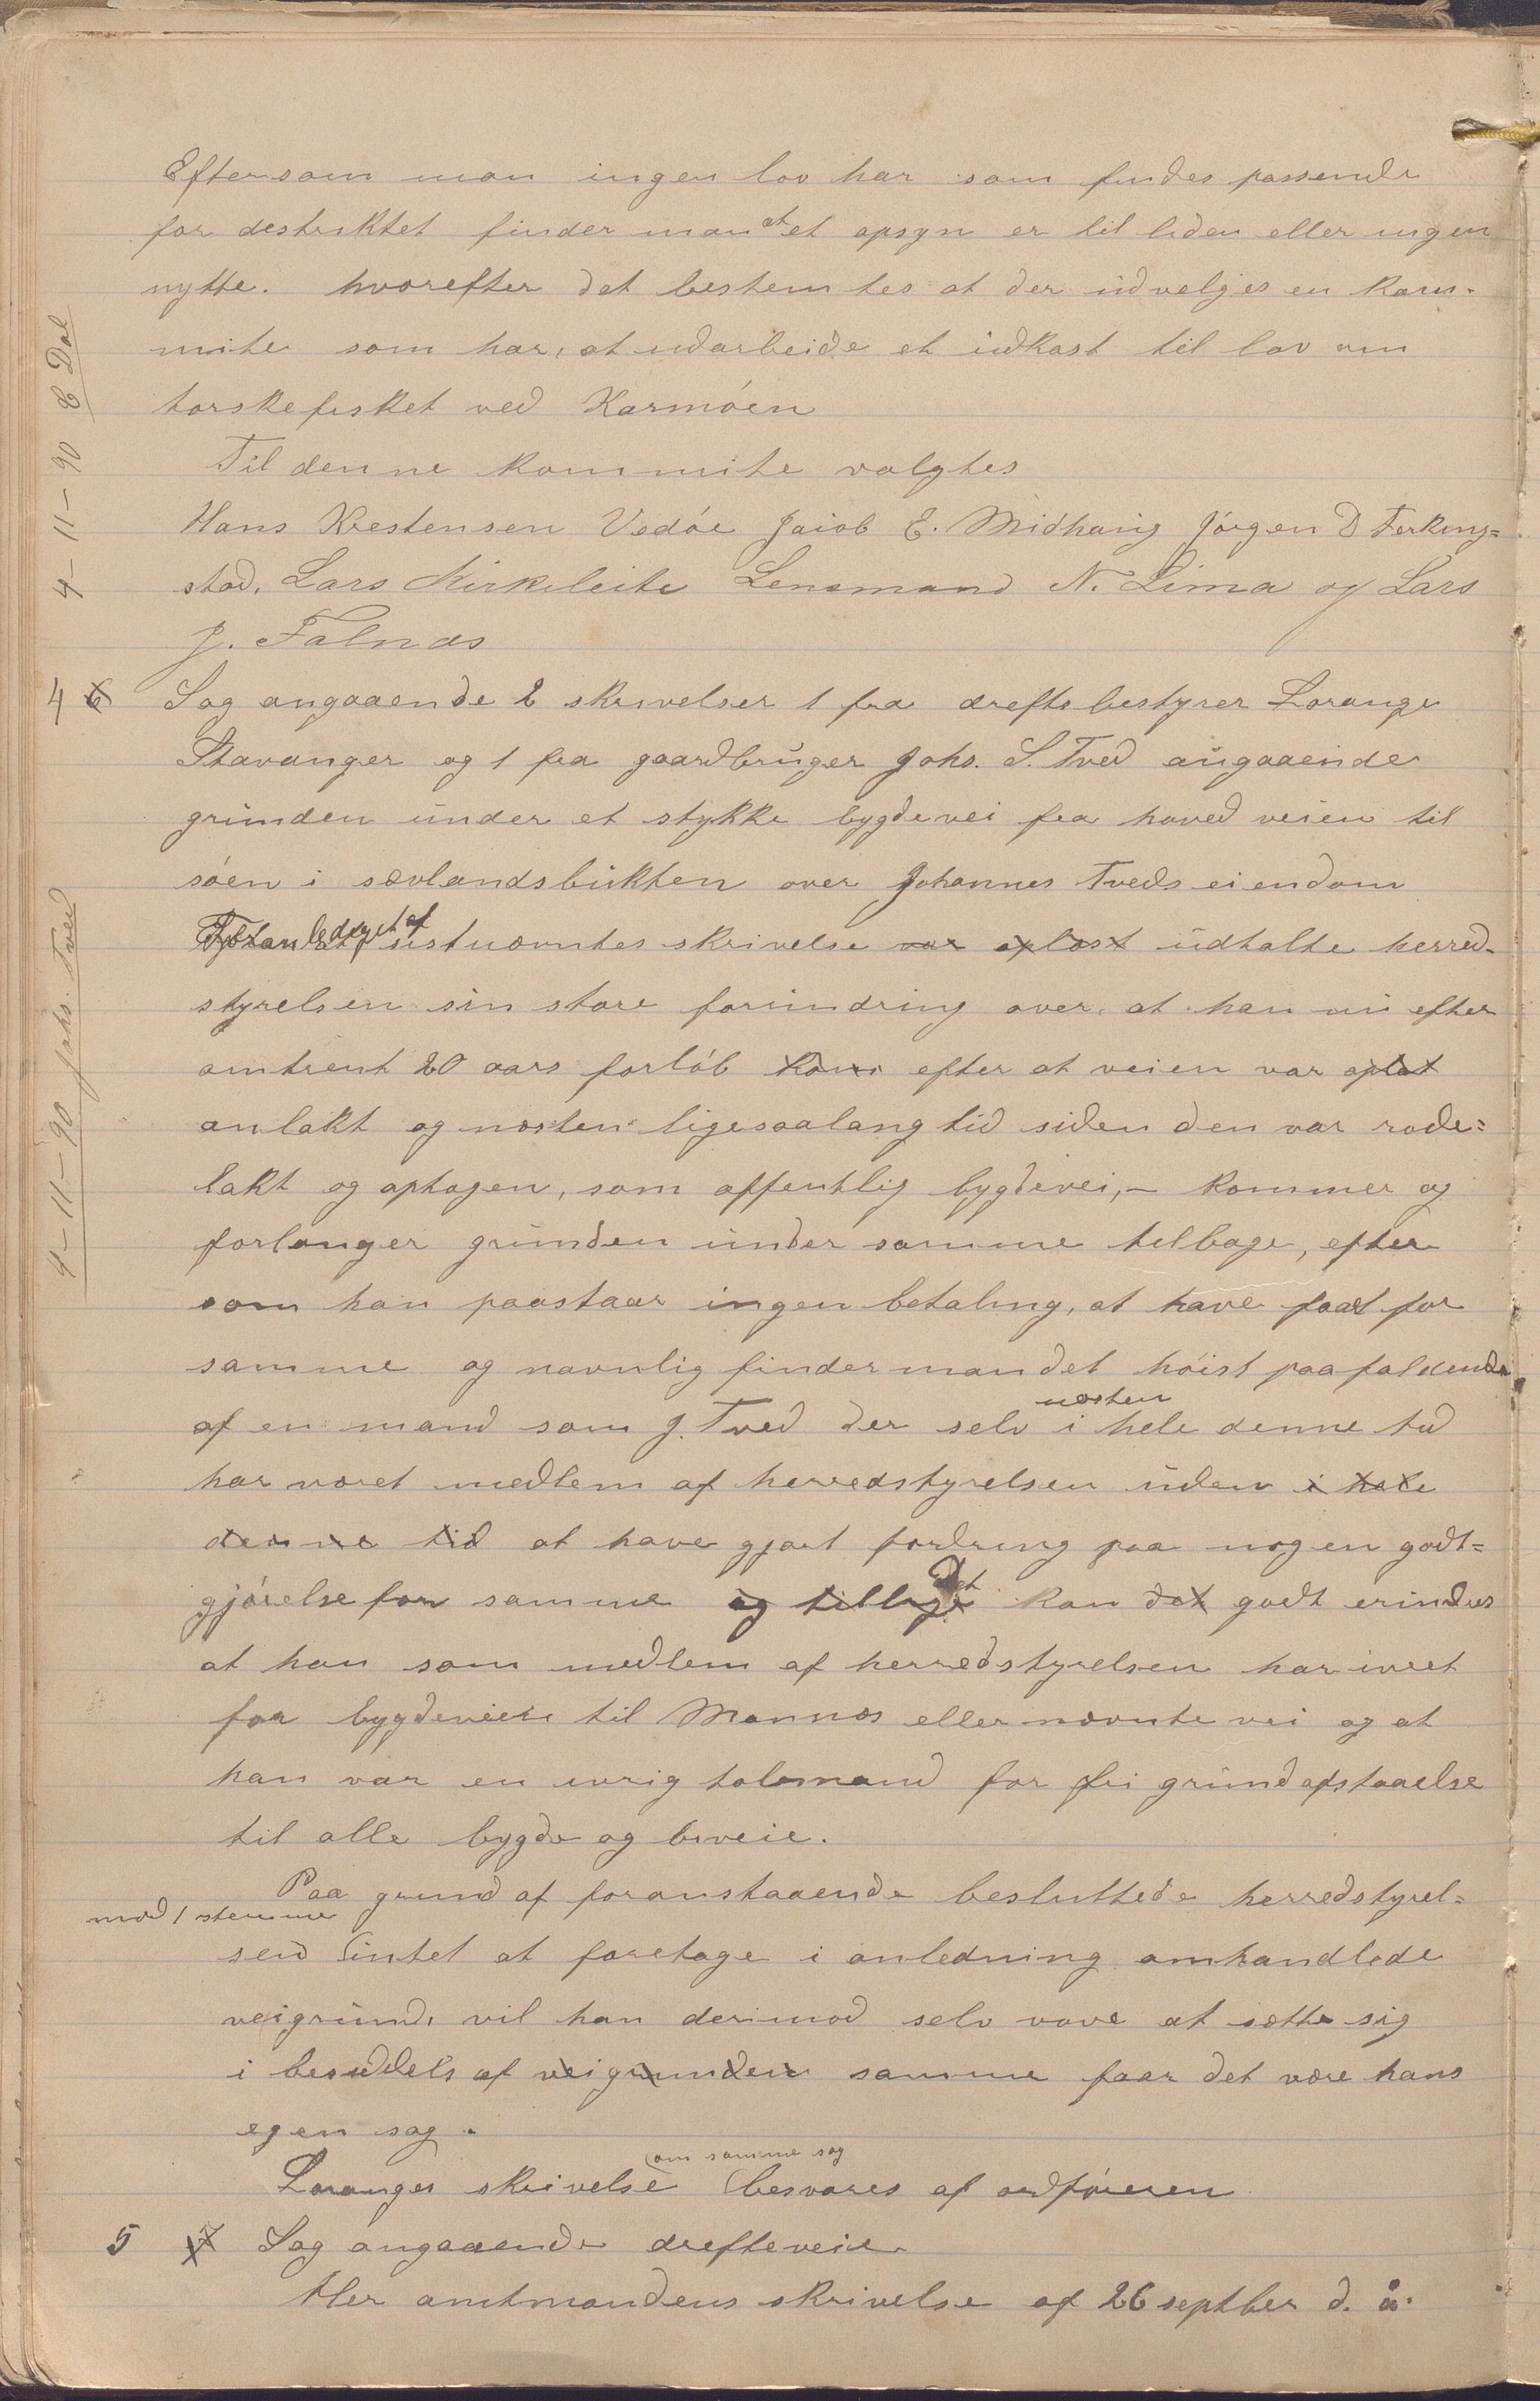 Eftersom man ingen lov har som findes passende
for destriktet finder man at et opsyn er til liden eller ingen
nytte. hvorefter det bestemtes at der udvelges en kom-
mite som har, at udarbeide et udkast til lov om
torskefisket ved Karmöen
Til denne kommite valgtes
Hans Krestensen Vedöe Jaiob E. Midhaug Jörgen D Ferking=
stad, Lars Kirkeleite Lensmand N. Lima og Lars
J. Falnæs
4 6 Sag angaaende 2 skrivelser 1 fra dreftsbestyrer Lorange
Stavanger og 1 fra gaardbruger Johs. S. Tved angaaende
grunden under et stykke bygdevei fra hoved veien til
söen i sævlandsbukten over Johannes Tveds eiendom
I anledning af sistnævntes skrivelse var oplæst udtalte herred-
styrelsen sin store forundring over, at han nu efter
omtrent 20 aars forlöb kom efter at veien var oplat
anlakt og næsten ligesaalang tid siden den var rode=
lakt og optagen, som offentlig bygdevei, - kommer og
forlanger grunden under samme tilbage, efter
som han paastaar ingen betaling, at have faaet for
samme og navnlig finder man det höist paafaldende
af en mand som J. Tved der selv næsten i hele denne tid
har været medlem af herredstyrelsen uden i hele
denne tid at have gjort fordring paa nogen godt=
gjörelse for samme og tillige Det kan det godt erindres
at han som medlem af herredstyrelsen har ivret
for bygdeveien til Mannes eller nævnte vei og at
han var en ivrig talsmand for fri grundafstaaelse
til alle bygde og biveie.
Paa grund af foranstaaende besluttede herredstyrel=
mod 1 stemme
sen intet at foretage i anledning omhandlede
veigrund, vil han derimod selv vove at sætte sig
i besiddels af veigrunden samme faar det være hans
egen sag.
Loranges skrivelse om samme sag besvares af ordföreren
5 7 Sag angaaende drefteveie.
Her amtmandens skrivelse af 26 septber d. å.
4-11-90 E Dal
4-11-90 Johs. Tved